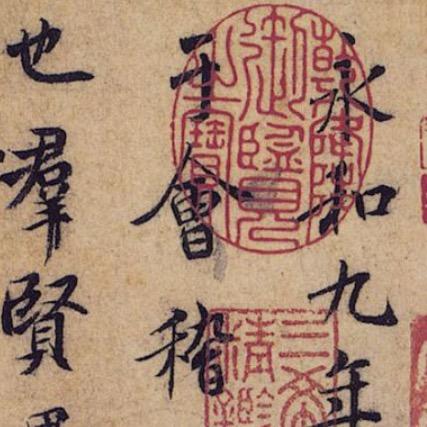 永和九年
于會稽
也羣賢
乾隆御覽之寶
三希
精鑑